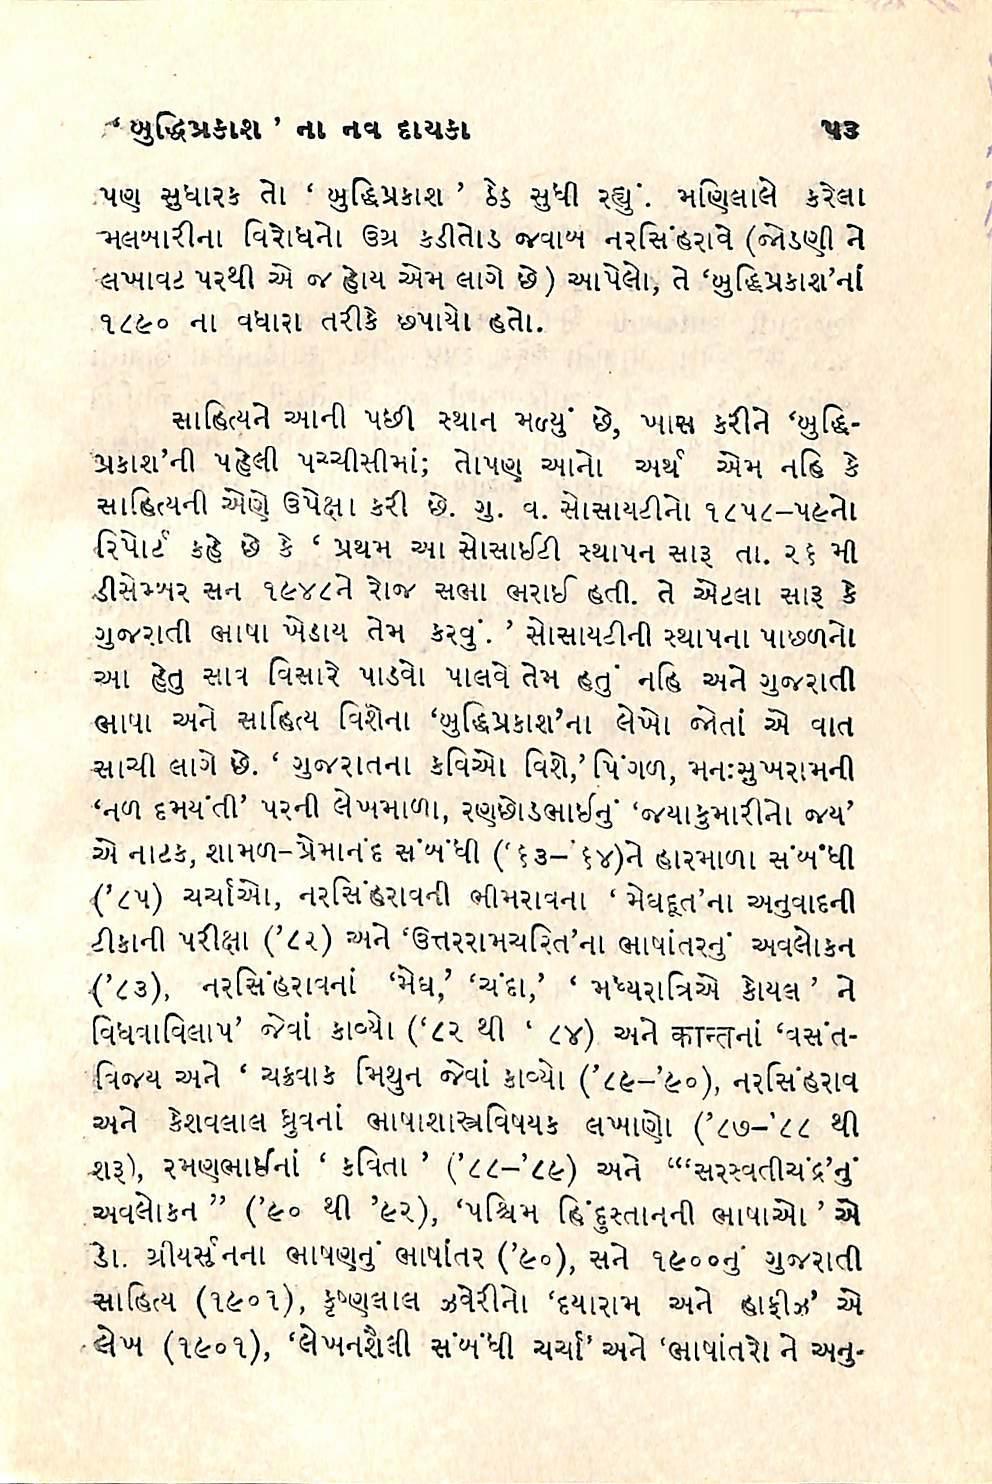 ‘ બુદ્ધિપ્રકાશ ’ ના નવ દાયકા ૫૩
પણ સુધારક તો ‘ બુદ્ધિપ્રકાશ ’ ઠેઠ સુધી રહ્યું. મણિલાલે કરેલા
મલબારીના વિરોધનો ઉગ્ર કડીતોડ જવાબ નરસિંહરાવે (જોડણી ને
લખાવટ પરથી એ જ હોય એમ લાગે છે) આપેલો, તે ‘બુદ્ધિપ્રકાશ’નાં
૧૮૯૦ ના વધારા તરીકે છપાયો હતો.
સાહિત્યને આની પછી સ્થાન મળ્યું છે, ખાસ કરીને ‘બુદ્ધિ-
પ્રકાશ’ની પહેલી પચ્ચીસીમાં; તોપણ આનો અર્થ એમ નહિ કે
સાહિત્યની એણે ઉપેક્ષા કરી છે. ગુ. વ. સોસાયટીનો ૧૮૫૮–૫૯નો
રિપોર્ટ કહે છે કે ‘ પ્રથમ આ સોસાઈટી સ્થાપન સારૂ તા. ૨૬ મી
ડીસેમ્બર સન ૧૯૪૮ને રોજ સભા ભરાઈ હતી. તે એટલા સારૂ કે
ગુજરાતી ભાષા ખેડાય તેમ કરવું. ’ સોસાયટીની સ્થાપના પાછળનો
આ હેતુ સાવ વિસારે પાડવો પાલવે તેમ હતું નહિ અને ગુજરાતી
ભાષા અને સાહિત્ય વિશેના ‘બુદ્ધિપ્રકાશ’ના લેખો જોતાં એ વાત
સાચી લાગે છે. ‘ ગુજરાતના કવિઓ વિશે,’ પિંગળ, મનઃસુખરામની
‘નળ દમયંતી’ પરની લેખમાળા, રણછોડભાઈનું ‘જયાકુમારીનો જય’
એ નાટક, શામળ–પ્રેમાનંદ સંબંધી (‘૬૩–‘૬૪)ને હારમાળા સંબંધી
(’૮૫) ચર્ચાઓ, નરસિંહરાવની ભીમરાવના ‘ મેઘદૂત’ના અનુવાદની
ટીકાની પરીક્ષા (’૮૨) અને ‘ઉત્તરરામચરિત’ના ભાષાંતરનું અવલોકન
(’૮૩), નરસિંહરાવનાં ‘મેઘ,’ ‘ચંદા,’ ‘ મધ્યરાત્રિએ કોયલ ’ ને
વિધવાવિલાપ’ જેવાં કાવ્યો (‘૮૨ થી ‘ ૮૪) અને कान्तનાં ‘વસંત-
વિજય અને ‘ ચક્રવાક મિથુન જેવાં કાવ્યો (’૮૯–’૯૦), નરસિંહરાવ
અને કેશવલાલ ધ્રુવનાં ભાષાશાસ્ત્રવિષયક લખાણો (’૮૭–’૮૮ થી
શરૂ), રમણભાઈનાં ‘ કવિતા ’ (’૮૮–’૮૯) અને “‘સરસ્વતીચંદ્ર’નું
અવલોકન ” (’૯૦ થી ’૯૨), ‘પશ્ચિમ હિંદુસ્તાનની ભાષાઓ ’ એ
ડો. ગ્રીયર્સનના ભાષણનું ભાષાંતર (’૯૦), સને ૧૯૦૦નું ગુજરાતી
સાહિત્ય (૧૯૦૧), કૃષ્ણલાલ ઝવેરીનો ‘દયારામ અને હાફીઝ’ એ
લેખ (૧૯૦૧), ‘લેખનશૈલી સંબંધી ચર્ચા’ અને ‘ભાષાંતરો ને અનુ-